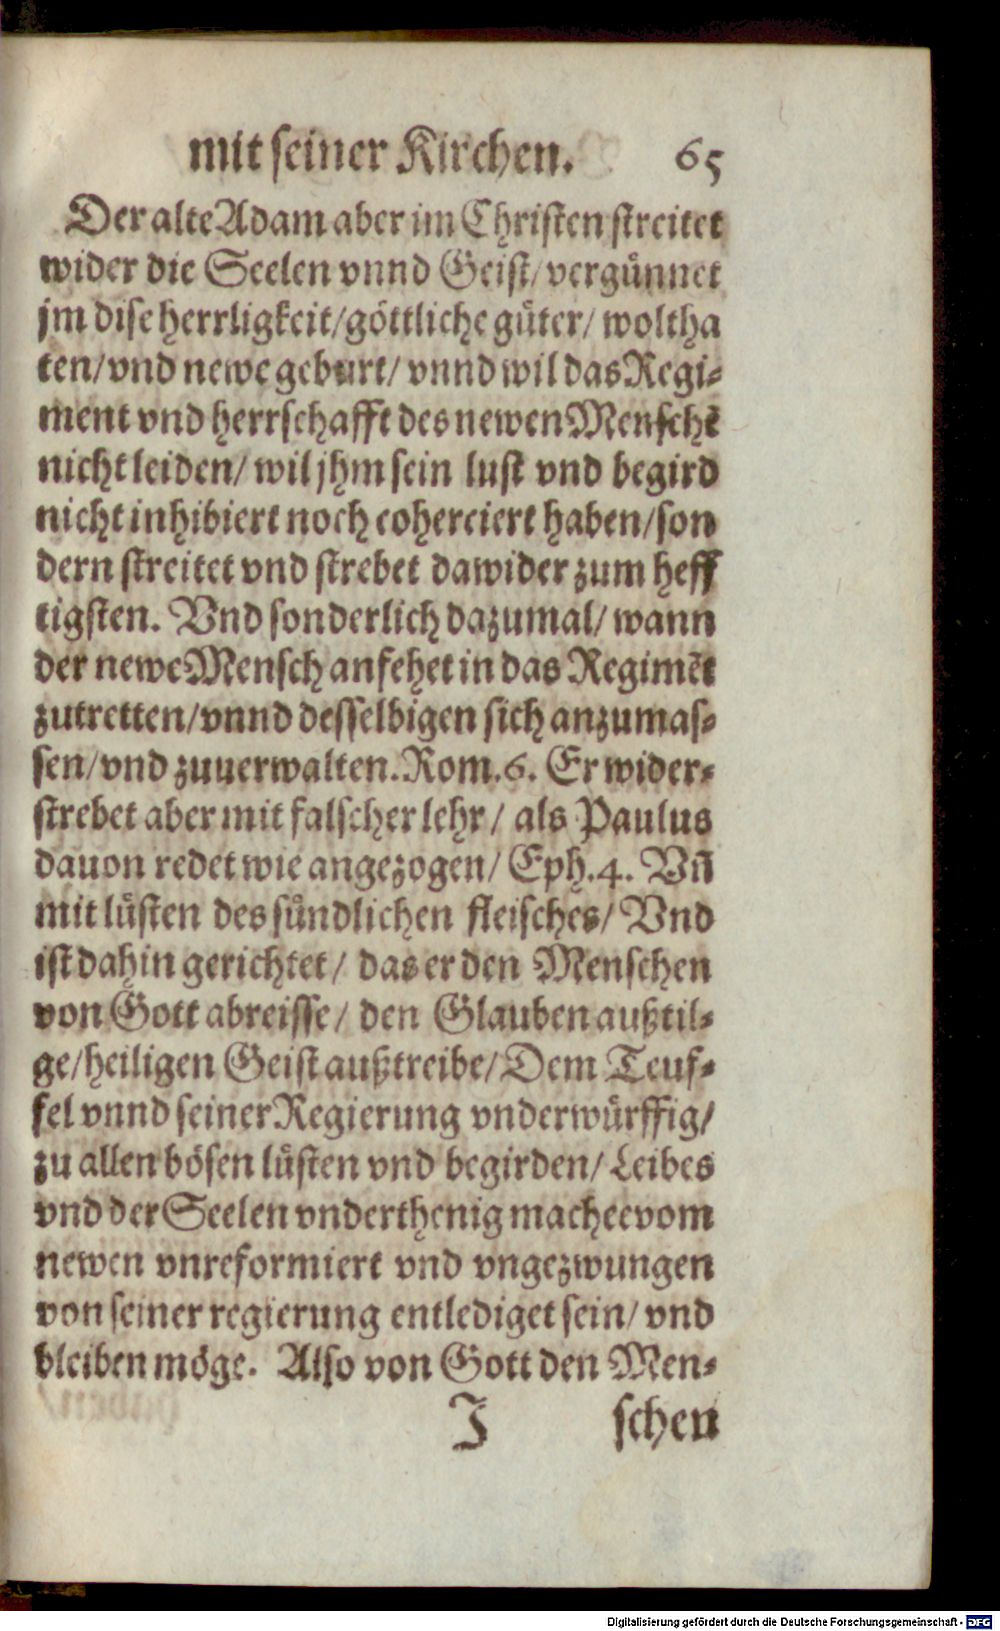 mit seiner Kirchen. 65
Der alte Adam aber im Christen streitet
wider die Seelen vnnd Geist/ vergünnet
jm dise herrligkeit/ göttliche güter/ woltha
ten/ vnd newe geburt/ vnnd wil das Regi-
ment vnd herrschafft des newen Menschē
nicht leiden/ wil jhm sein lust vnd begird
nicht inhibiert noch coherciert haben/ son
dern streitet vnd strebet dawider zum heff
tigsten. Vnd sonderlich dazumal/ wann
der newe Mensch anfehet in das Regimēt
zutretten/ vnnd desselbigen sich anzumas-
sen/ vnd zuuerwalten. Rom. 6. Er wider-
strebet aber mit falscher lehr/ als Paulus
dauon redet wie angezogen/ Eph. 4. Vñ
mit lüsten des sündlichen fleisches/ Vnd
ist dahin gerichtet/ das er den Menschen
von Gott abreisse/ den Glauben außtil-
ge/ heiligen Geist außtreibe/ Dem Teuf-
fel vnnd seiner Regierung vnderwürffig/
zu allen bösen lüsten vnd begirden/ Leibes
vnd der Seelen vnderthenig macheevom
newen vnreformiert vnd vngezwungen
von seiner regierung entlediget sein/ vnd
bleiben möge. Also von Gott den Men-
J schen
Digitalisierung gefördert durch die Deutsche Forschungsgemeinschaft - DFG